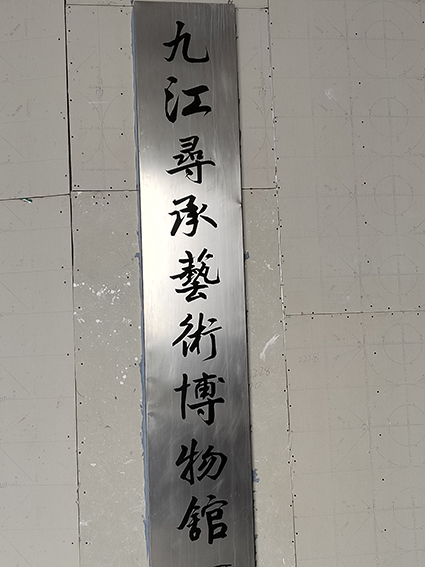 九江尋承藝術博物舘